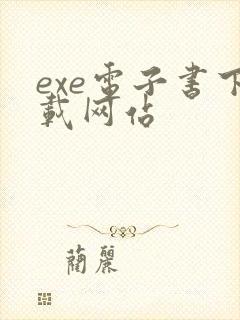 exe電子書下
載网佔
蘭麗